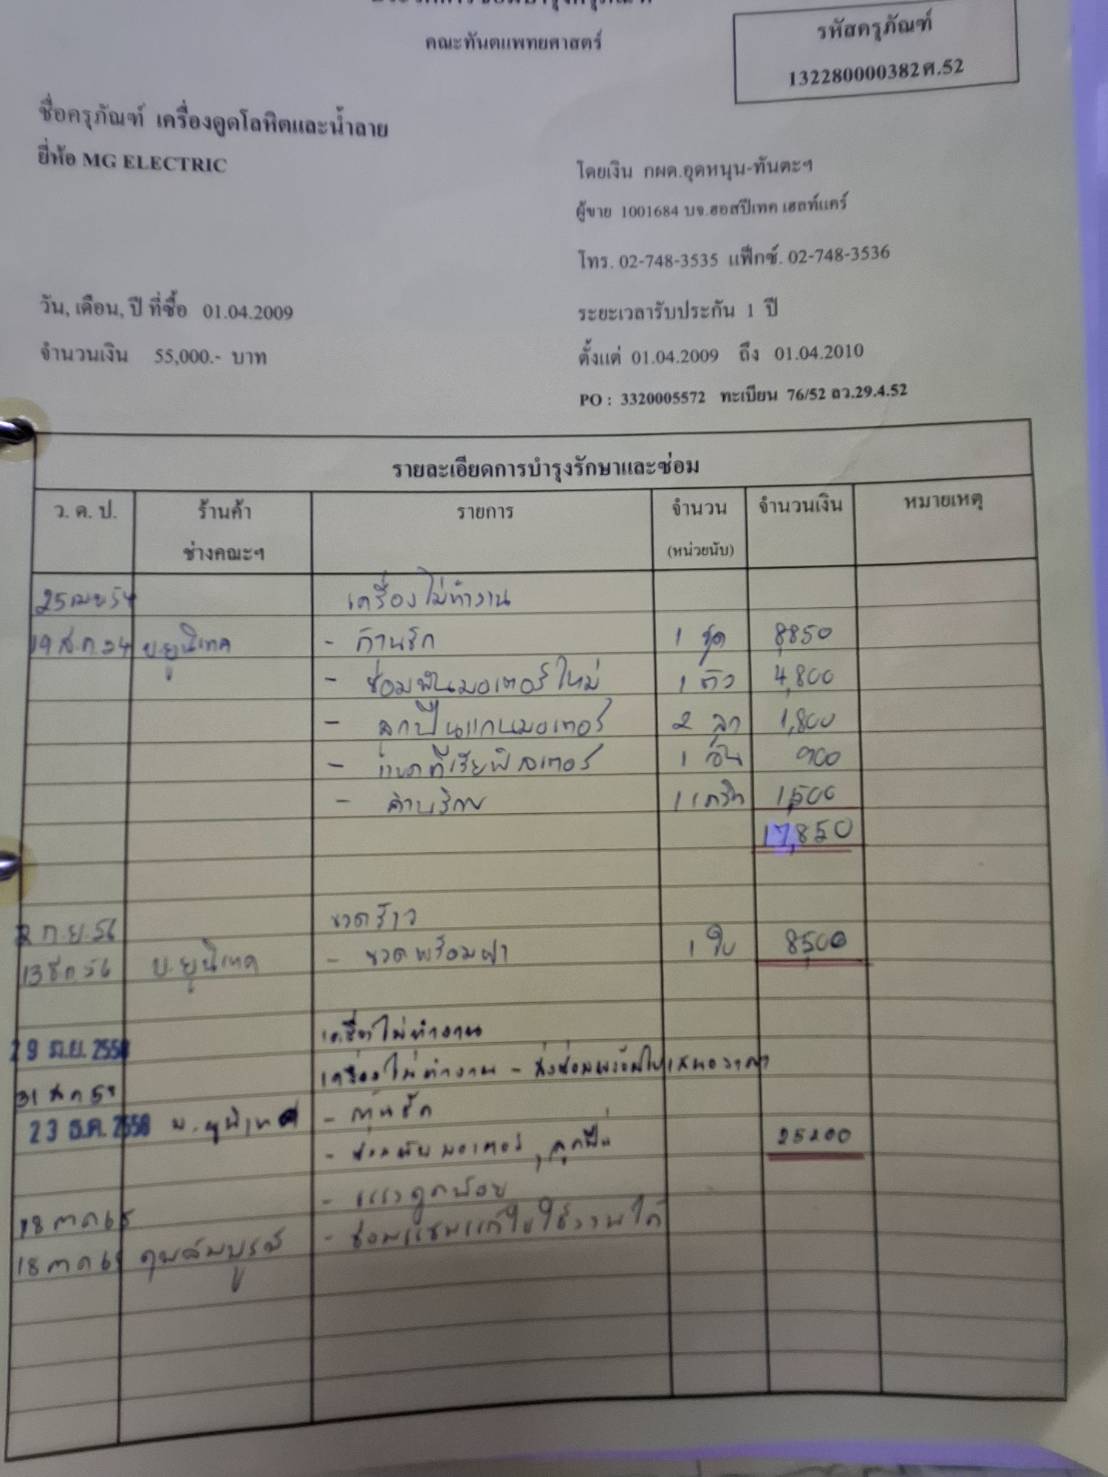 คณะทันตแพทยศาสตร์
รหัสครุภัณฑ์
132280000382ศ.52
ชื่อครุภัณฑ์ เครื่องดูดโลหิตและน้ำลาย
ยี่ห้อ MG ELECTRIC
โดยเงิน กผด.อุดหนุน-ทันตะฯ
ผู้ขาย 1001684 บจ.ฮอสปิเทค เฮลท์แคร์
โทร. 02-748-3535 แฟ๊กซ์. 02-748-3536
วัน, เดือน, ปี ที่ซื้อ 01.04.2009
ระยะเวลารับประกัน 1 ปี
จำนวนเงิน 55,000.- บาท
ตั้งแต่ 01.04.2009 ถึง 01.04.2010
PO : 3320005572 ทะเบียน 76/52 ลว.29.4.52
รายละเอียดการบำรุงรักษาและซ่อม
ว. ด. ป. ร้านค้า ช่างคณะฯ รายการ จำนวน (หน่วยนับ) จำนวนเงิน หมายเหตุ
25 เมย เครื่องไม่ทำงาน
19 ส.ค. 54 บ.ยูนิเทค - ก้านรัก 1 ชุด 8,850
- ซ่อมพันมอเตอร์ใหม่ 1 ตัว 4,800
- ลูกปืนแกนมอเตอร์ 2 ลูก 1,800
- แบคทีเรียฟิลเตอร์ 1 อัน 900
- ค่าบริการ 1 1,500
17,850
2 ก.ย. 56 ขวดร้าว
13 ธค 56 บ.ยูนิเทค - ขวดพร้อมฝา 1 ใบ 8,500
29 มิ.ย. 2558 เครื่องไม่ทำงาน
31 สค 58 เครื่องไม่ทำงาน - ส่งซ่อมพร้อมใบเสนอราคา
23 ธ.ค. 2558 บ.ยูนิเทค - ก้านรัก
- ซ่อมพันมอเตอร์, ลูกปืน 25200
18 - แรงดูดน้อย
18 คุณสมบูรณ์ - ซ่อมแซมแก้ไขใช้งานได้